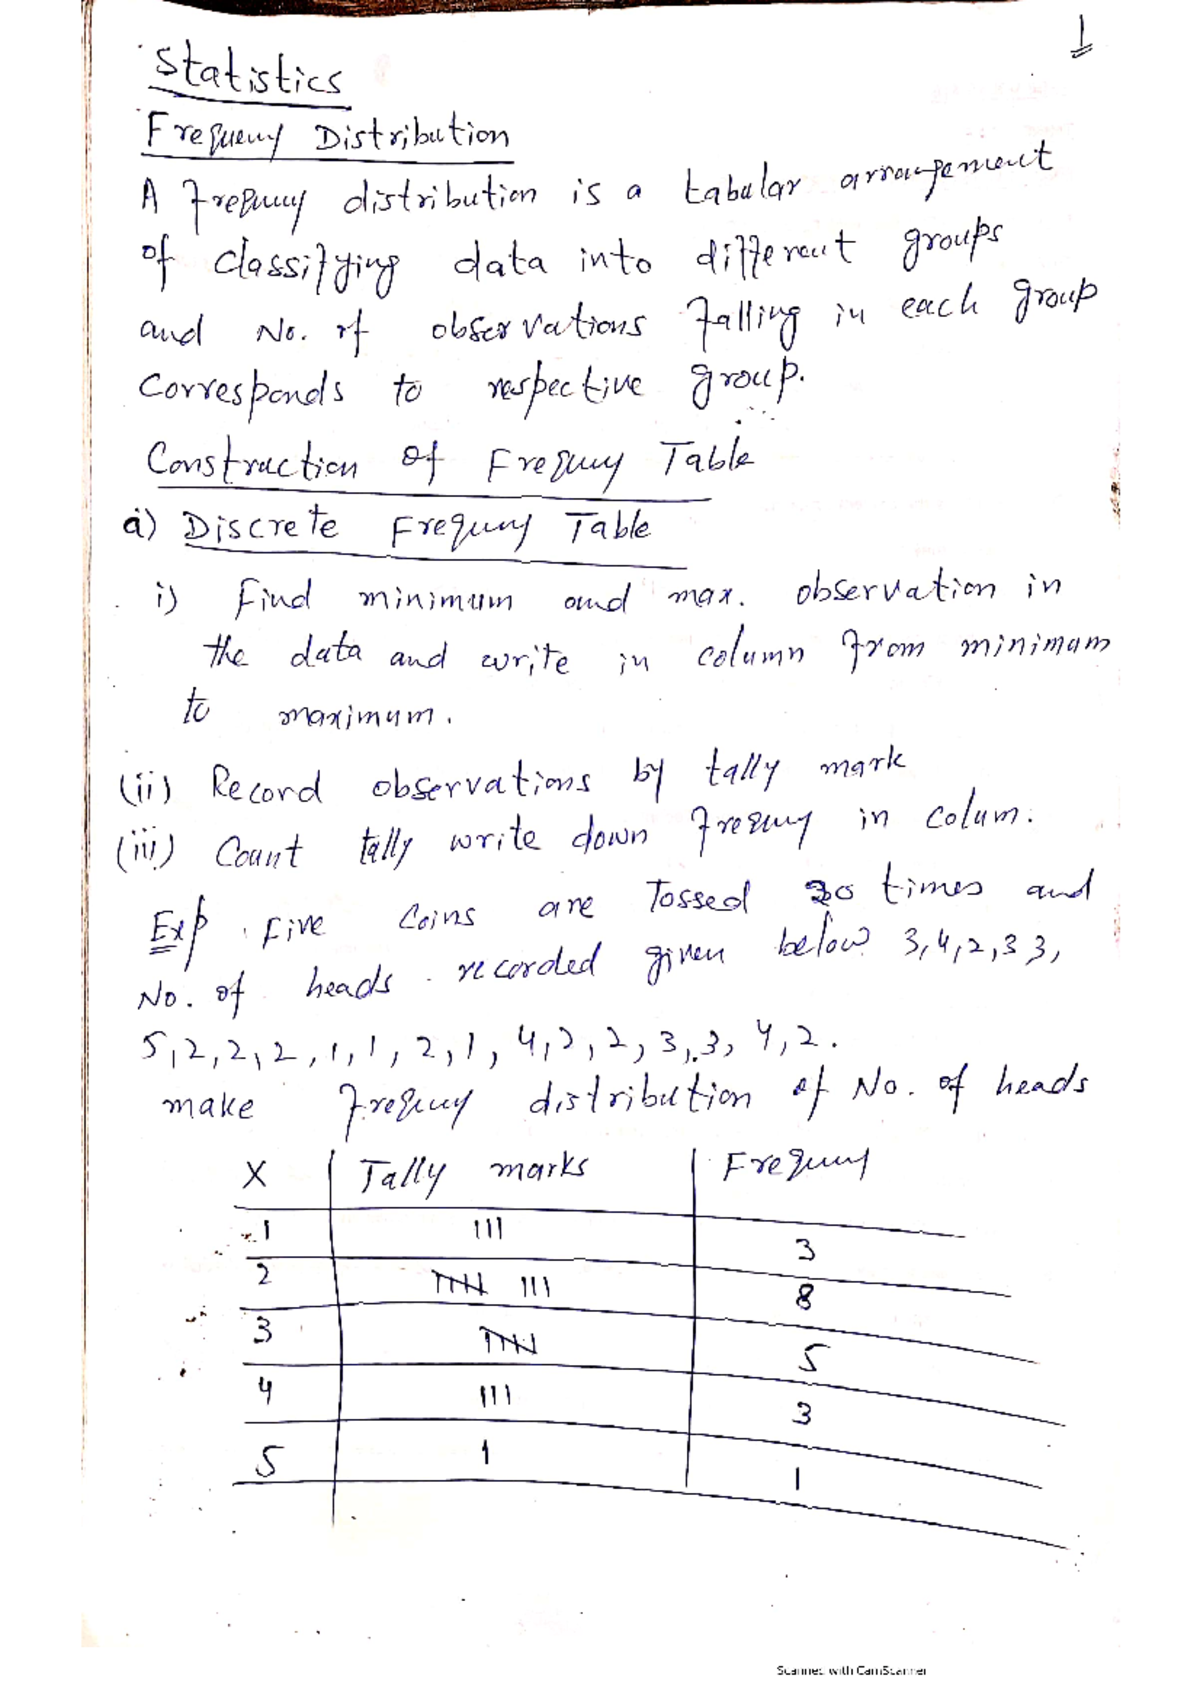 1
Statistics
Frequency Distribution
A frequency distribution is a tabular arrangement
of classifying data into different groups
and No. of observations falling in each group
corresponds to respective group.
Construction of Frequency Table
a) Discrete Frequency Table
i) Find minimum and max. observation in
the data and write in column from minimum
to maximum.
(ii) Record observations by tally mark
(iii) Count tally write down frequency in colum.
Exp. Five coins are Tossed times and
No. of heads recorded given below 3,4,2,3 3,
5,2,2,2,1,1,2,1,4,2,2,3,3,4,2.
make frequency distribution of No. of heads
X Tally marks Frequency
1 III 3
2 IIII III 8
3 IIII 5
4 III 3
5 I 1
Scanned with CamScanner